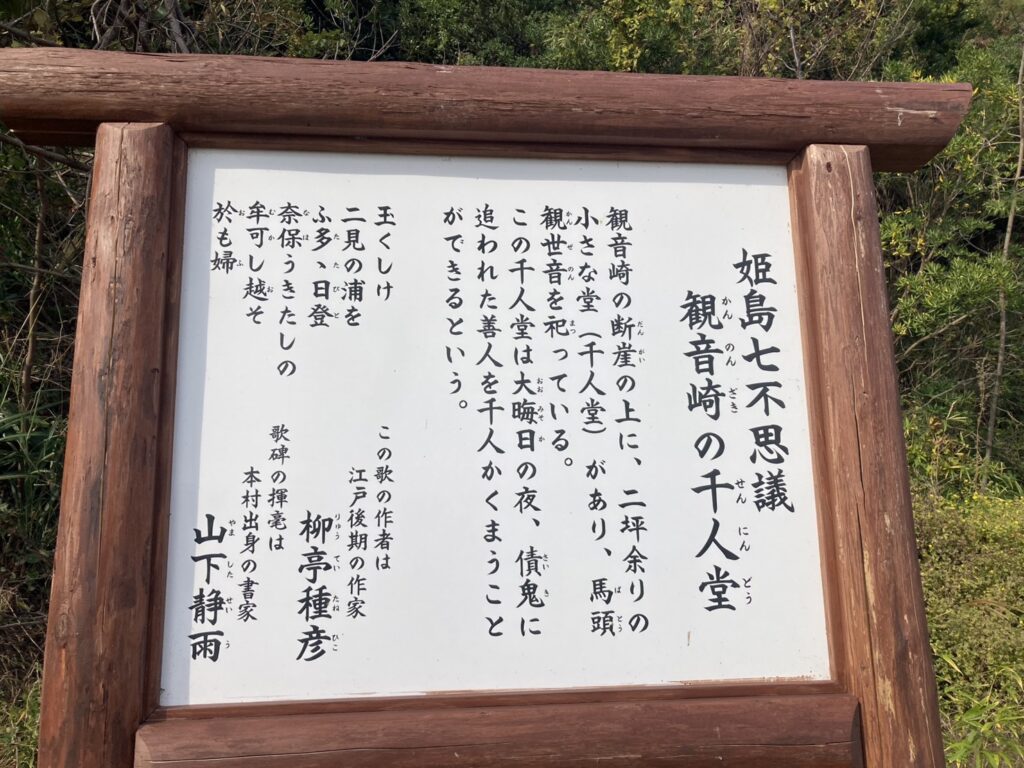 姫島七不思議
観音崎の千人堂
観音崎の断崖の上に、二坪余りの
小さな堂（千人堂）があり、馬頭
観世音を祀っている。
この千人堂は大晦日の夜、債鬼に
追われた善人を千人かくまうこと
ができるという。
玉くしけ
二見の浦を
ふ多ゝ日登
奈保うきたしの
牟可し越そ
於も婦
この歌の作者は
江戸後期の作家
柳亭種彦
歌碑の揮毫は
本村出身の書家
山下静雨